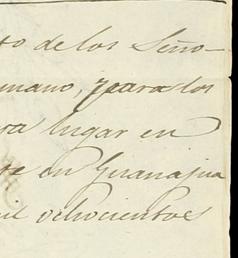 to de los Seño-
mano, para los
ra lugar en
te en Guanajua
mil ochocientos